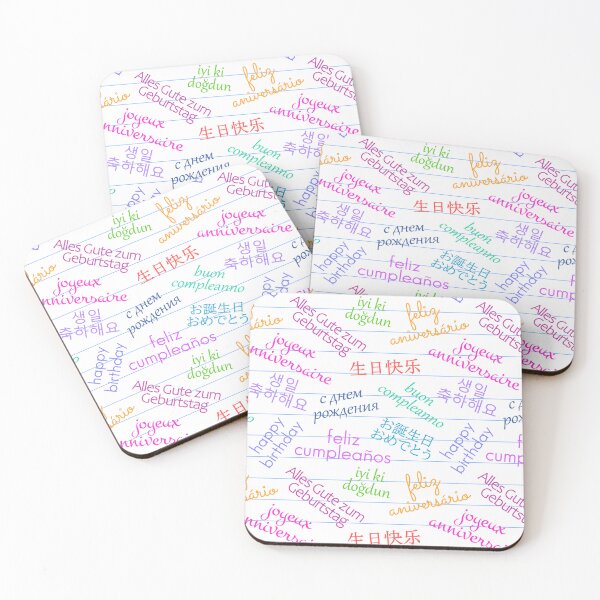 Alles Gute zum
Geburtstag
iyi ki
doğdun
feliz
aniversário
ário
joyeux
anniversaire
joyeux
anniversaire
生日快乐
생일
축하해요
с днем
buon
compleanno
iyi ki
doğdun
feliz
aniversário
joyeux
anniversaire
生日快乐
생일
축하해요
с днем
рождения
buon
compleanno
お誕生日
おめでとう
feliz
cumpleaños
happy
birthday
Alles Gute zum
Geburtstag
iyi ki
doğdun
feliz
aniversário
Alles Gute zum
Geburtstag
joyeux
anniversaire
joyeux
anniversaire
生日快乐
생일
축하해요
buon
compleanno
생일
축하해요
с днем
рождения
お誕生日
おめでとう
happy
birthday
feliz
cumpleaños
iyi ki
doğdun
Alles Gute zum
Geburtstag
ário
joyeux
生日
Alles Gute zum
Geburtstag
iyi ki
doğdun
feliz
aniversário
ário
joyeux
anniversaire
joyeux
anniversaire
生日快乐
생일
축하해요
с днем
рождения
buon
compleanno
생일
축하해요
с днем
happy
birthday
feliz
cumpleaños
お誕生日
おめでとう
happy
birthday
feliz
cumpleaños
Alles Gute zum
Geburtstag
iyi ki
doğdun
feliz
aniversário
Alles Gute zum
Geburtstag
ário
joyeux
anniversaire
joyeux
生日快乐